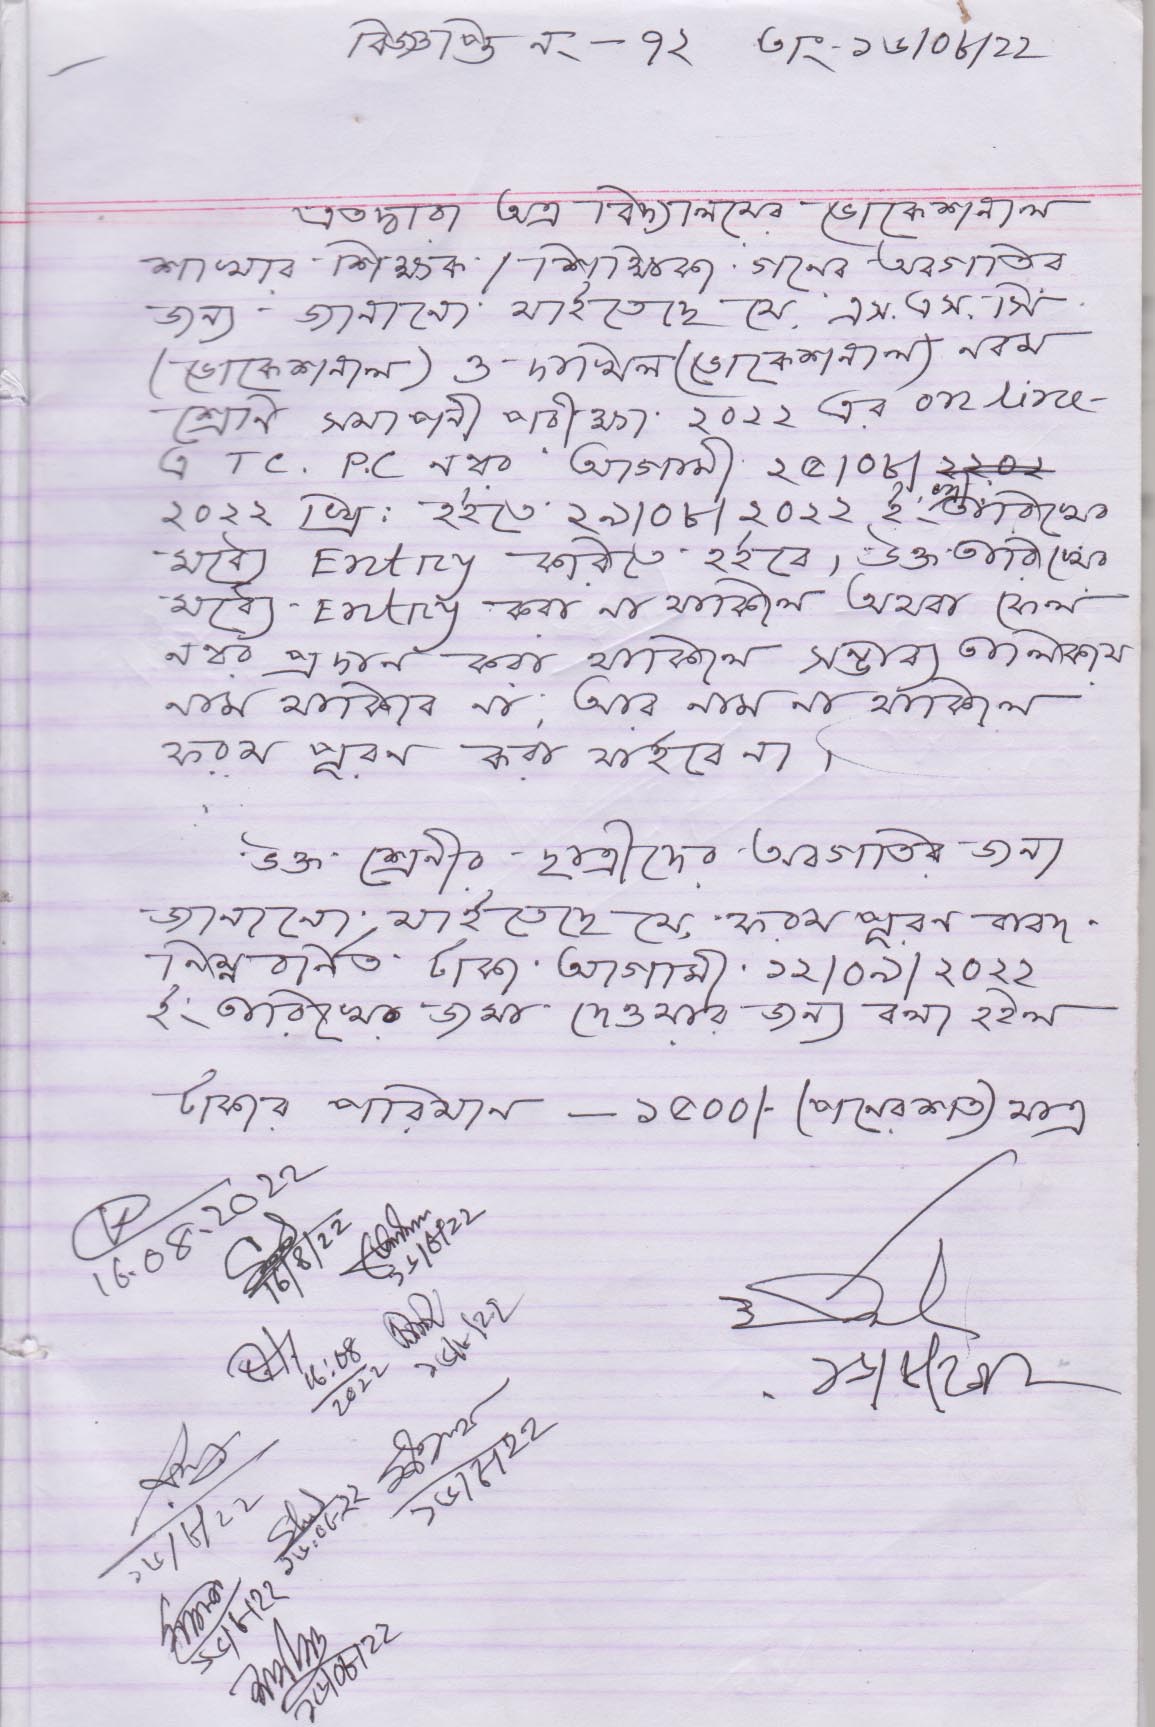 বিজ্ঞপ্তি নং - ৭২ তাং - ১৬/০৮/২২
এতদ্বারা অত্র বিদ্যালয়ের ভোকেশনাল
শাখার শিক্ষক / শিক্ষিকা গনের অবগতির
জন্য জানানো যাইতেছে যে, এস.এস.সি
(ভোকেশনাল) ও দাখিল (ভোকেশনাল) নবম
শ্রেনি সমাপনী পরীক্ষা ২০২২ এর online-
এ TC. P.C নম্বর আগামী ২৫/০৮/ ২২০২
২০২২ খ্রি: হইতে ২৯/০৮/২০২২ ইং তারিখের
মধ্যে Entry করিতে হইবে, উক্ত তারিখের
মধ্যে Entry করা না থাকিলে অথবা ফেল
নম্বর প্রদান করা থাকিলে সম্ভাব্য তালিকায়
নাম থাকিবে না, আর নাম না থাকিলে
ফরম পুরন করা যাইবে না।
উক্ত শ্রেনীর ছাত্রীদের অবগতির জন্য
জানানো যাইতেছে যে, ফরম পুরন বাবদ
নিম্ন বর্নিত টাকা আগামী ১২/০৯/২০২২
ইং তারিখের জমা দেওয়ার জন্য বলা হইল
টাকার পরিমান - ১৫০০/- (পনেরশত) মাত্র
16.08.2022
16/8/22
১৬/৮/২২
16.08
2022
১৬/৮/২২
১৬/৮/২২
১৬/৮/২২
১৬/৮/২২
১৬.০৮.২২
১৬/৮/২২
১৬/০৮/২২